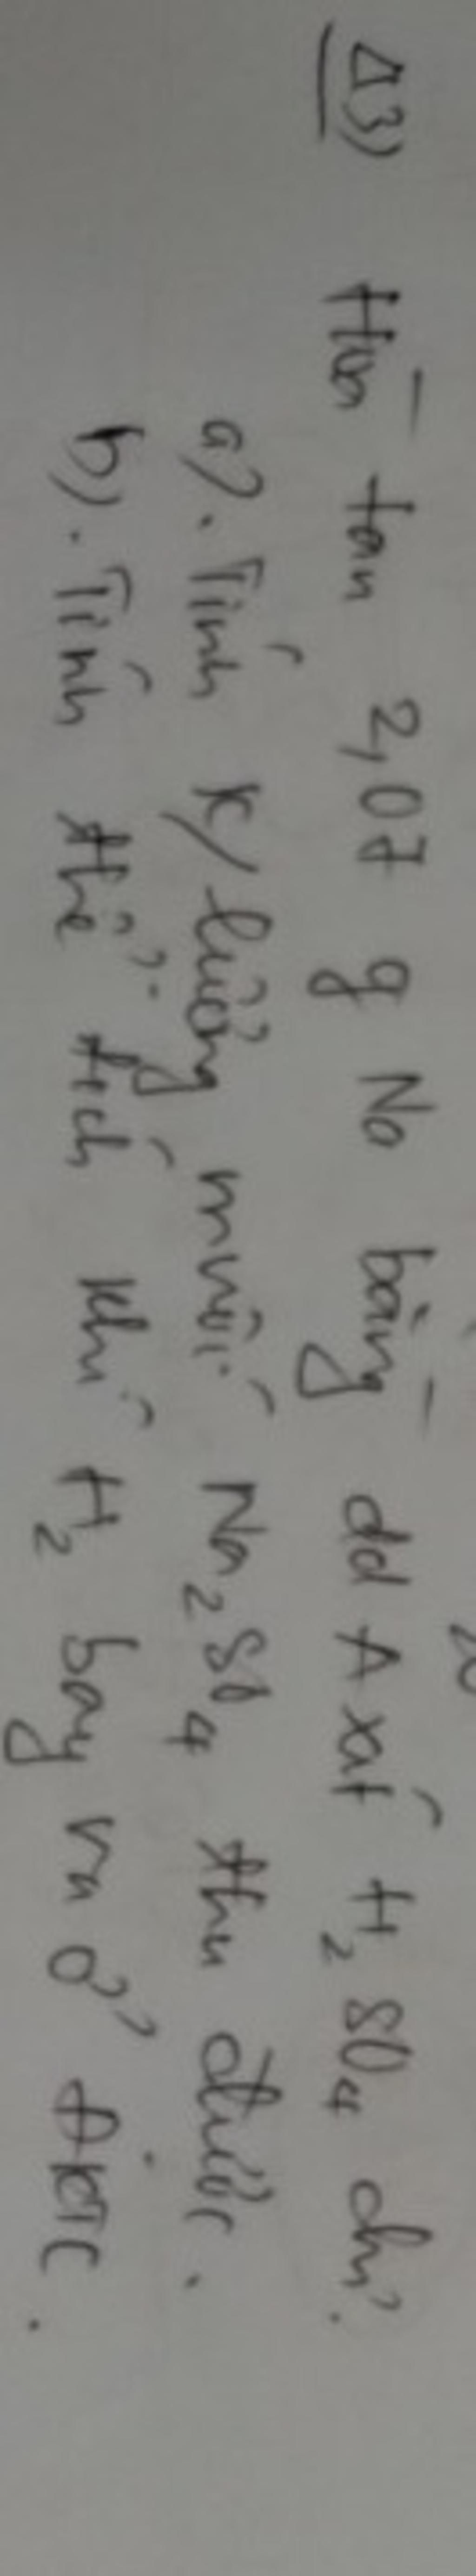 43) Hòa tan 2,07 g Na bằng dd Axít H2SO4 dư.
a). Tính k/lượng muối Na2SO4 thu được.
b). Tính thể tích khí H2 bay ra ở ĐKTC.